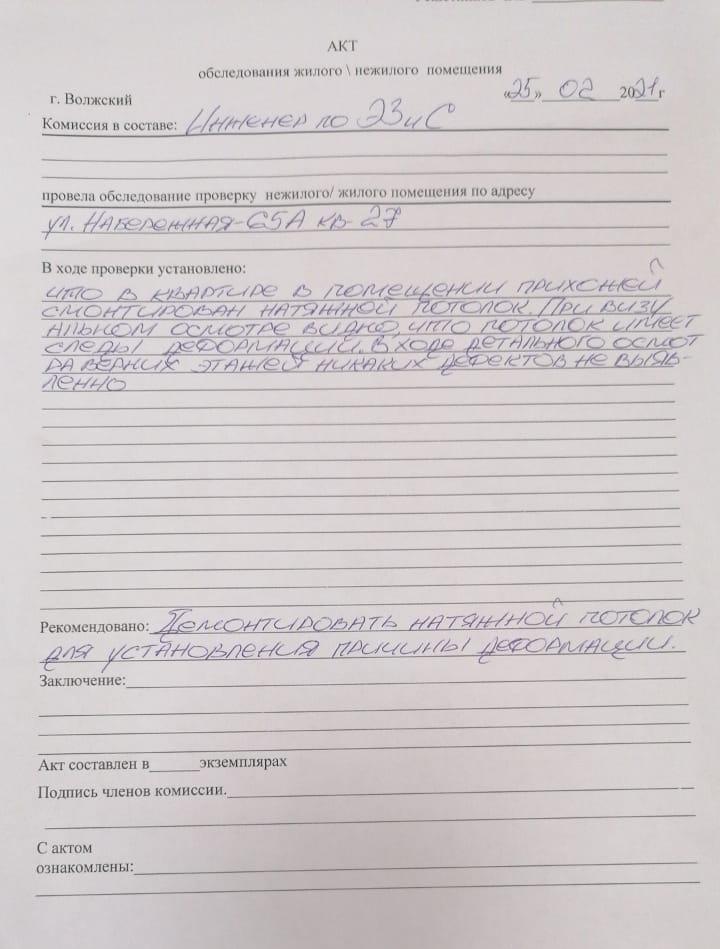 АКТ
обследования жилого \ нежилого помещения
г. Волжский
«25» 02 2021г
Комиссия в составе: Инженер по ЭЗиС
провела обследование проверку нежилого/ жилого помещения по адресу
ул. Набережная-65А кв-27
В ходе проверки установлено:
что в квартире в помещении прихожей
смонтирован натяжной потолок. При визу
альном осмотре видно, что потолок имеет
следы деформаций. В ходе детального осмот
ра верних этажей никаких дефектов не выяв-
ленно
Рекомендовано: Демонтировать натяжной потолок
для установления причины деформации.
Заключение:
Акт составлен в______экземплярах
Подпись членов комиссии.
С актом
ознакомлены: